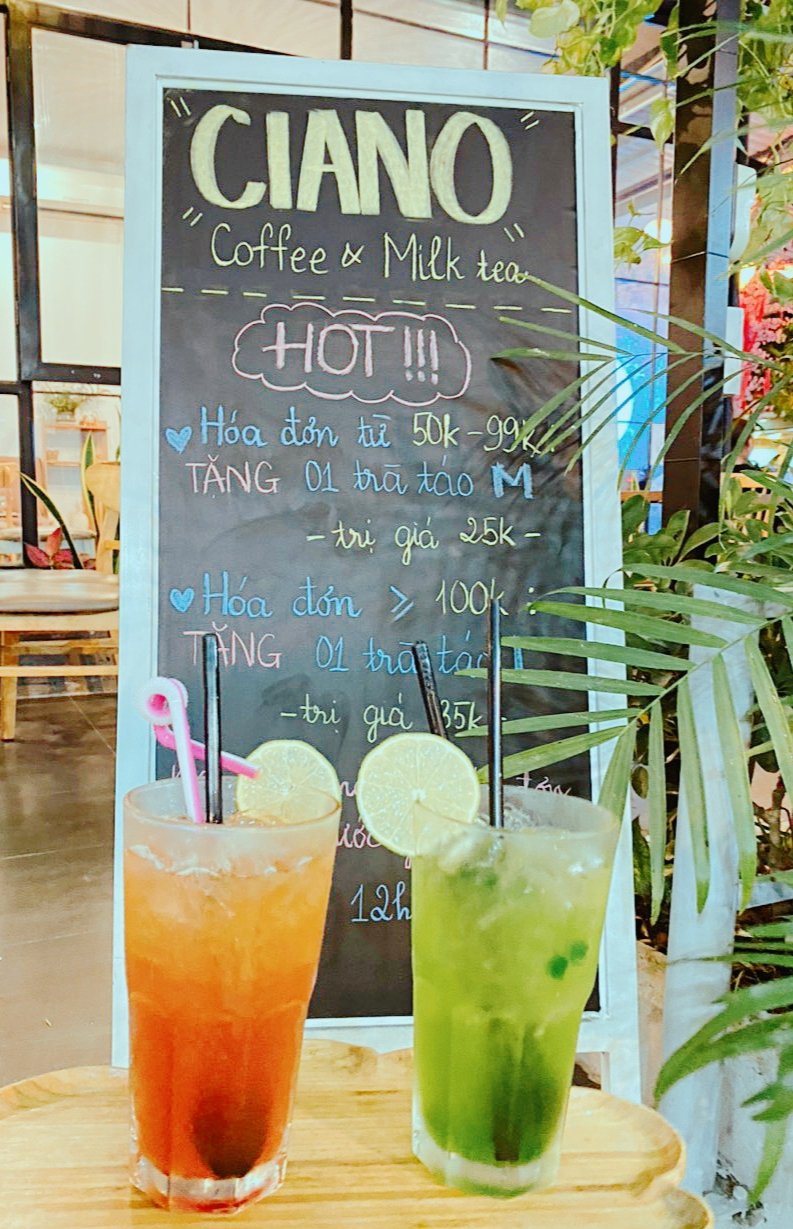 CIANO
Coffee & Milk tea
HOT!!!
Hóa đơn từ 50k - 99k :
TẶNG 01 trà táo M
- trị giá 25k -
Hóa đơn ≥ 100k :
TẶNG 01 trà táo
- trị giá 35k -
12h